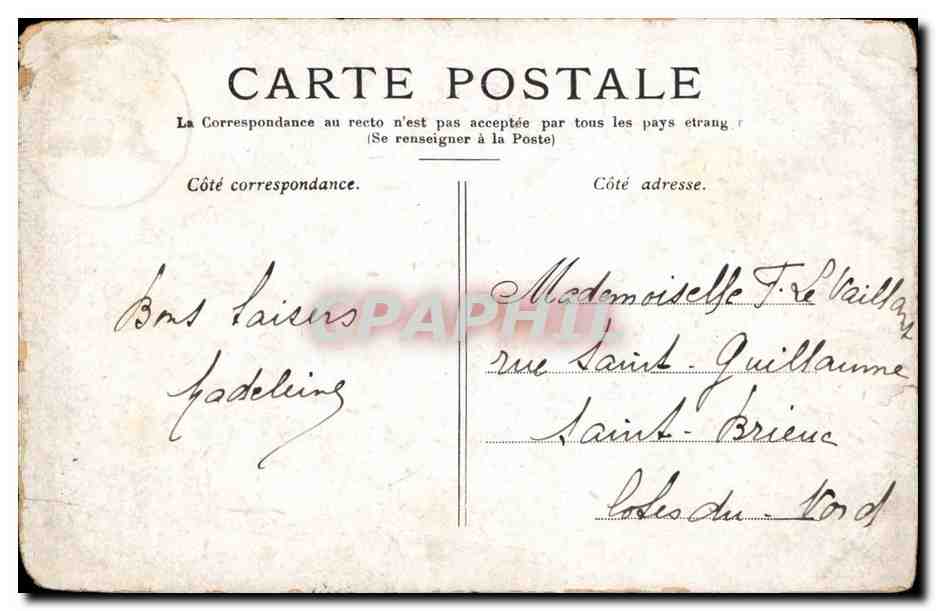 CARTE POSTALE
La Correspondance au recto n'est pas acceptée par tous les pays etrang r
(Se renseigner à la Poste)
Côté correspondance.
Côté adresse.
Bons baisers
Madeleine
Mademoiselle F. Le Vaillant
rue Saint-Guillaume
Saint-Brieuc
Cotes du-Nord
CPAPHIL